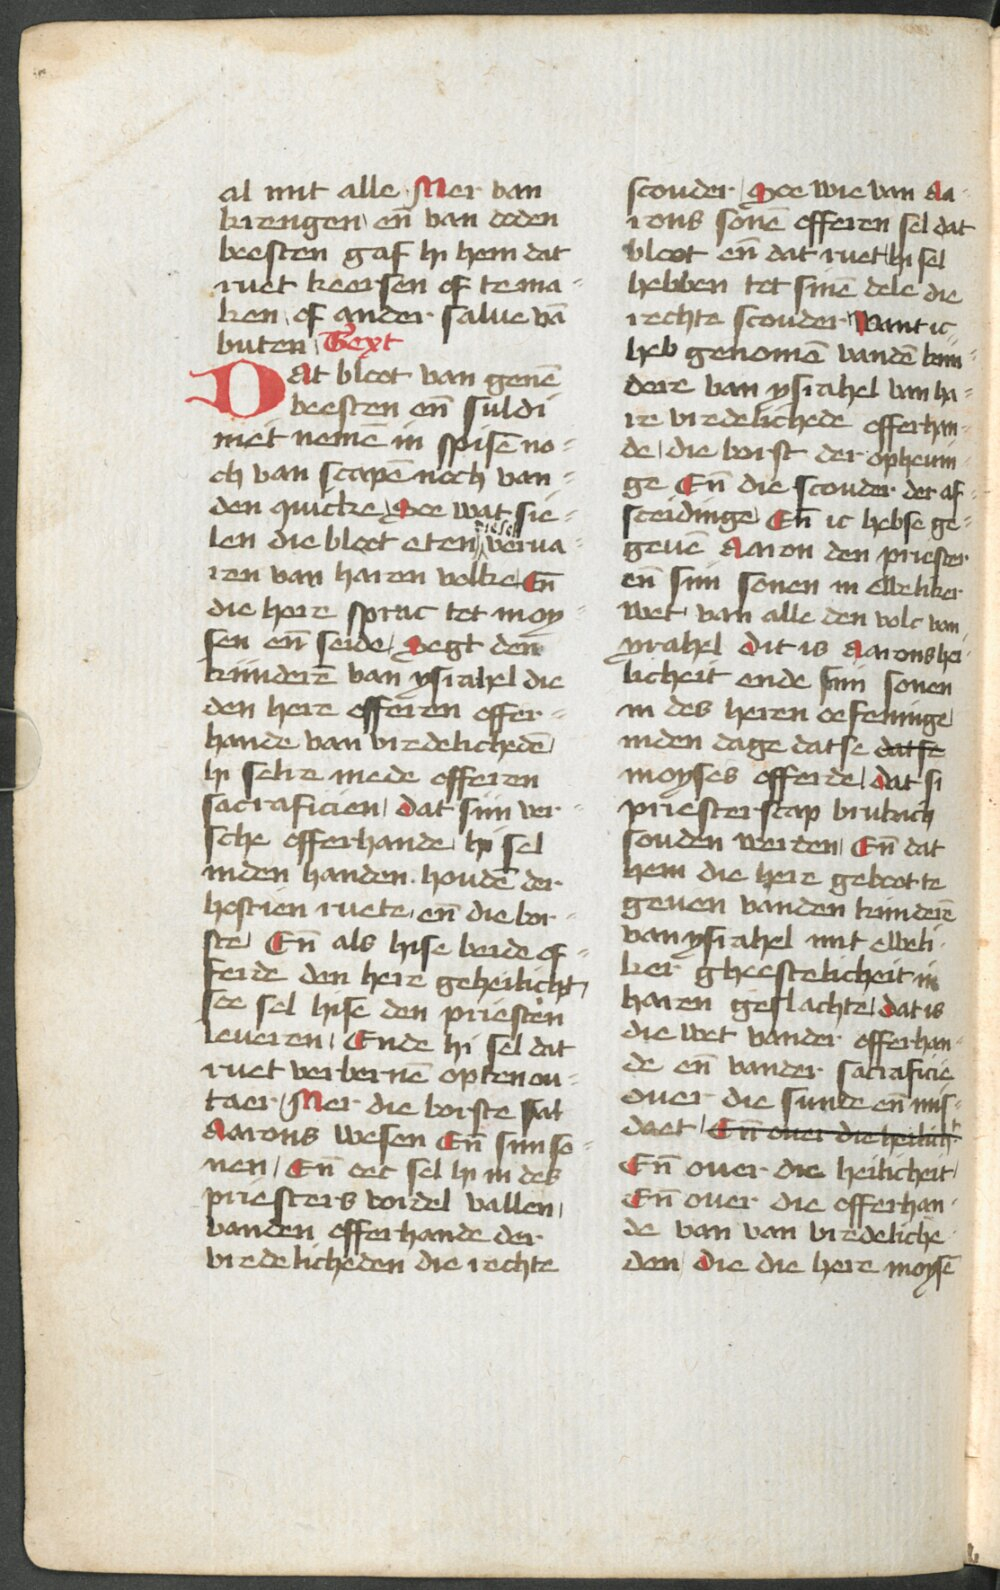 al mit alle Mer van
krengen en̄ van doden
beesten gaf hi hem dat
ruet keersen of te ma⸗
ken of ander salue vā
buten Text
Dat bloet van genē
beesten en̄ suldi
niet nemē in spisē no⸗
ch van scapē noch van⸗
den quicke Soe wat sie⸗
len die bloet eten die sel verua⸗
ren van haren volke En̄
die here sprac tot moy⸗
sen en̄ seide Segt den
kinderē van ysrahel die
den here offeren offer⸗
hande van vredelichedē
hi selre mede offeren
sacraficien dat sijn ver⸗
sche offerhande hi sel
inden handen houdē der
hostien ruete en̄ die bor⸗
ste En̄ als hise beide of⸗
ferde den here geheilicht
soe sel hise den priesten
leueren Ende hi sel dat
ruet verbernē opten ou⸗
taer Mer die borste sal
Aarons wesen En̄ sijn so⸗
nen En̄ oec sel hi in des
priesters vordel vallen
vanden offerhande der
vredelicheden die rechte
scouder Soe wie van Aa⸗
rons sonē offeren sel dat
bloet en̄ dat ruet hi sel
hebben tot sinē dele die
rechte scouder Want ic
heb genomē vandē kin⸗
dere van ysrahel van ha⸗
re vredelichede offerhan⸗
de die borst der opheuin⸗
ge En̄ die scouder der af⸗
sceidinge En̄ ic hebse ge⸗
geuē Aaron den priester
en̄ sijn sonen in eweliker
wet van alle den volc van
ysrahel Dit is Aarons hei⸗
licheit ende sijn sonen
in des heren oefeninge
inden dage datse datse
moyses offerde dat si
priesterscap bruken
souden werden En̄ dat
hem die here geboot te
geuen vanden kinderē
van ysrahel mit eweli⸗
ker gheestelicheit in
haren geslachte dat is
die wet vander offerhan⸗
de en̄ vander sacraficie
ouer die sunde en̄ mis⸗
daet En̄ ouer die heilich
En̄ ouer die heilicheit
En̄ ouer die offerhan⸗
de van van vredeliche⸗
den Die die here moysē